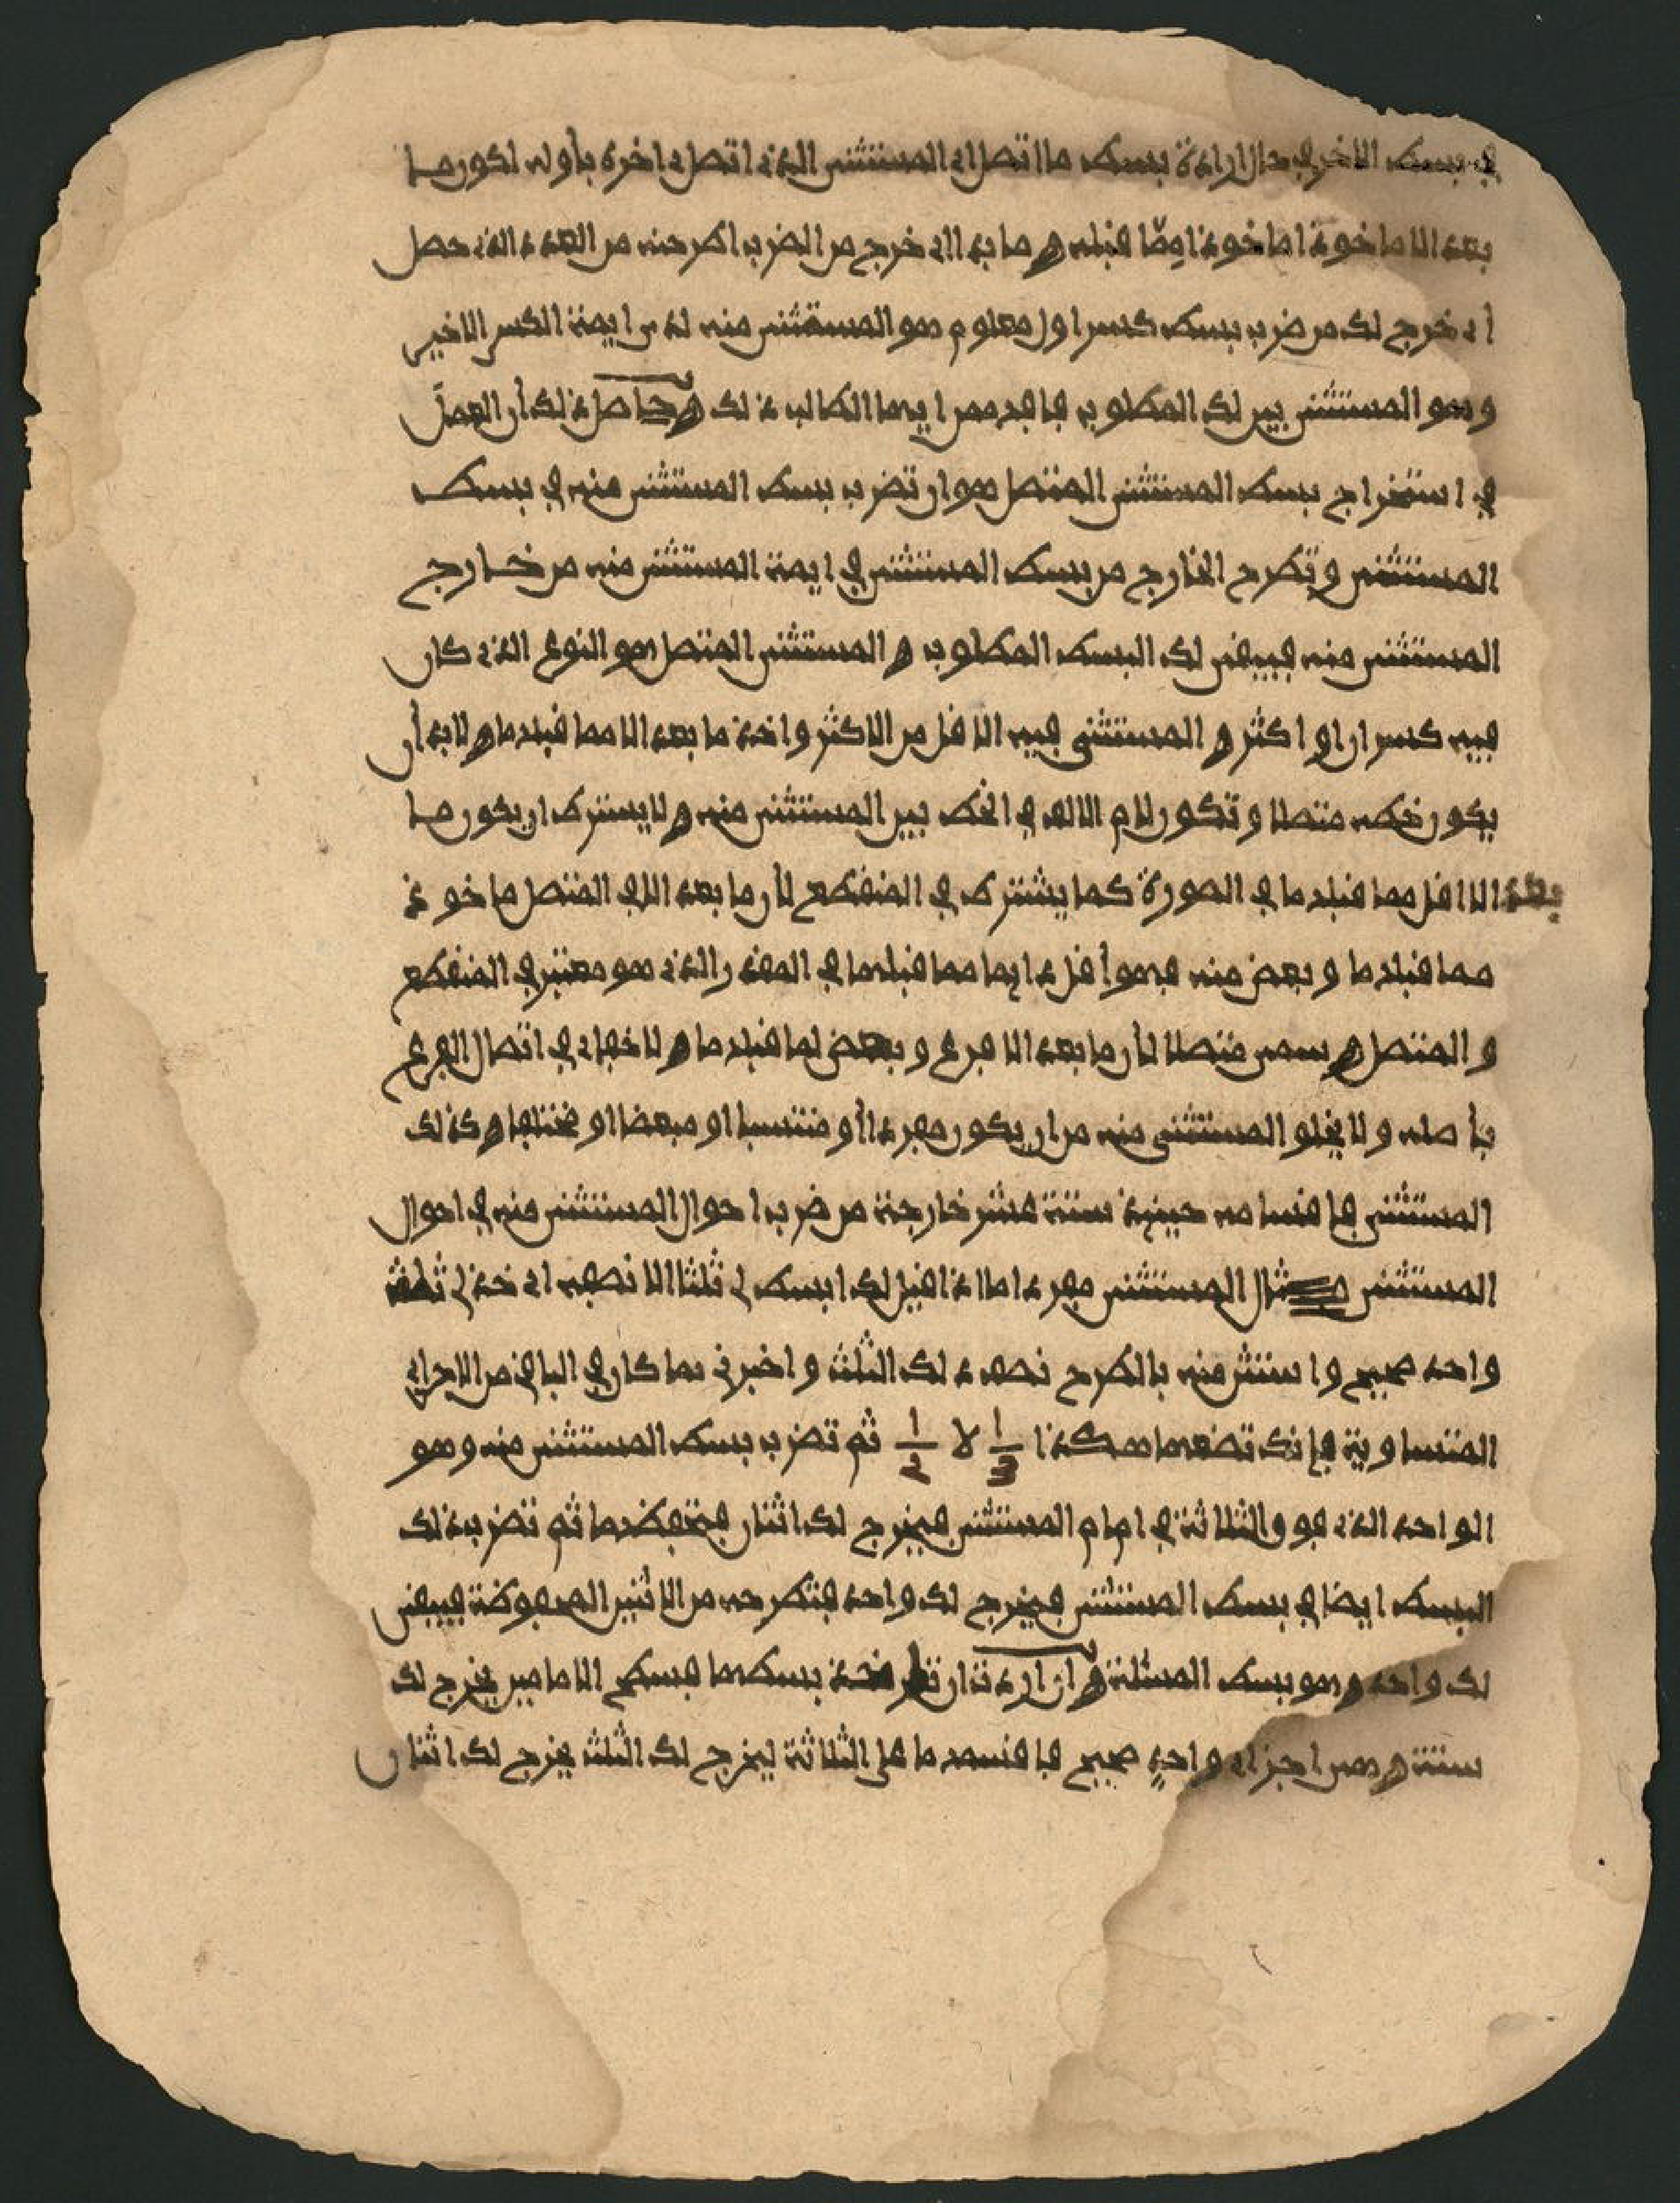 في بسط الاخر في حال ارادة بسط ما اتصل اي المستثنى الذي اتصل اي اخره باوله لكون ما
بعد الا ماخوذ اماخوذا مِمّا قبله ه ما بدا اي خرج من الضرب اطرحنه من العدد الذي حصل
اي خرج لك من ضرب بسط كسر اول معلوم هو المستثنى منه لدى ايمة الكسر الاخير
وهو المستثنى يبن لك المطلوب فافهمن ايها الطالب ذلك ه حاصل ذلك أن العمل
في استخراج بسط المستثنى المتصل هو ان تضرب بسط المستثنى منه في بسط
المستثنى وتطرح الخارج من بسط المستثنى في ايمة المستثنى منه من خارج
المستثنى منه فيبقى لك البسط المطلوب ه المستثنى المتصل هو النوع الذي كان
فيه كسران او اكثر ه المستثنى فيه الاقل من الاكثر واخذ ما بعد الا مما قبلها ه لابد أن
يكون خطه متصلا وتكون لام الالف في الخط بين المستثنى منه ه لا يشترط ان يكون ما
بعد الا اقل مما قبلها في الصورة كما يشترط في المنقطع لأن ما بعد الا في المتصل ماخوذ
مما قبلها وبعض منه فهو أقل دايما مما قبلها في المقدر الذي هو معتبر في المنقطع
والمتصل ه سمي متصلا لأن ما بعد الا فرع وبعض لما قبلها ه لا خفاء في اتصال الفرع
بأصله ولا يخلو المستثنى منه من ان يكون مفردا أو منتسبا او مبعضا او مختلفا ه كذلك
المستثنى فاقسامه حينيذ ستة عشر خارجة من ضرب احوال المستثنى منه في احوال
المستثنى مثال المستثنى مفردا ما اذا قيل لك ابسط لي ثلثا الا نصفه اي خذ لي ثلث
واحد صحيح واستثن منه بالطرح نصف ذلك الثلث واخبرني بما كان في الباقي من الاجزاء
المتساوية فإنك تضعها هكذا 1/3 لا 1/2 ثم تضرب بسط المستثنى منه وهو
الواحد الذي فوق الثلاثة في امام المستثنى فيخرج لك اثنان فتحفظهما ثم تضرب ذلك
البسط ايضا في بسط المستثنى فيخرج لك واحد فتطرحه من الاثنين المحفوظة فيبقى
لك واحد وهو بسط المسئلة ه ان اردت ان تعرف حد بسطها فسطح الامامين يخرج لك
ستة ه هي اجزاء واحدٍ صحيح فاقسمها على الثلاثة ليخرج لك الثلث يخرج لك اثنان